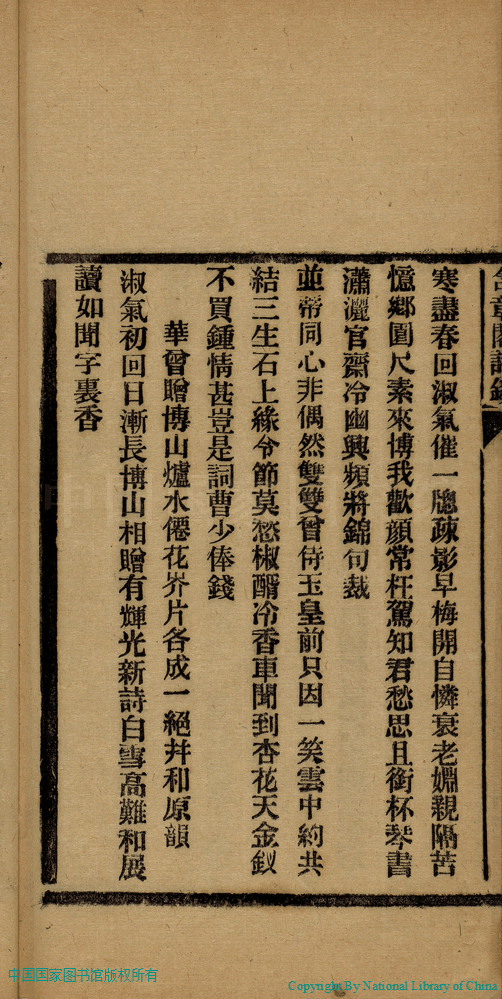 寒盡春回淑氣催一牕疎影早梅開自憐衰老姻親隔苦
憶鄉園尺素來博我歡顔常枉駕知君愁思且銜杯琴書
瀟灑官齋冷幽興頻將錦句裁
並蒂同心非偶然雙雙曾侍玉皇前只因一笑雲中約共
結三生石上緣令節莫愁椒醑冷香車聞到杏花天金釵
不買鍾情甚豈是詞曹少俸錢
華曾贈博山爐水僊花岕片各成一絕幷和原韻
淑氣初回日漸長博山相贈有輝光新詩白雪高難和展
讀如聞字裏香
中国国家图书馆版权所有
Copyright By National Library of China